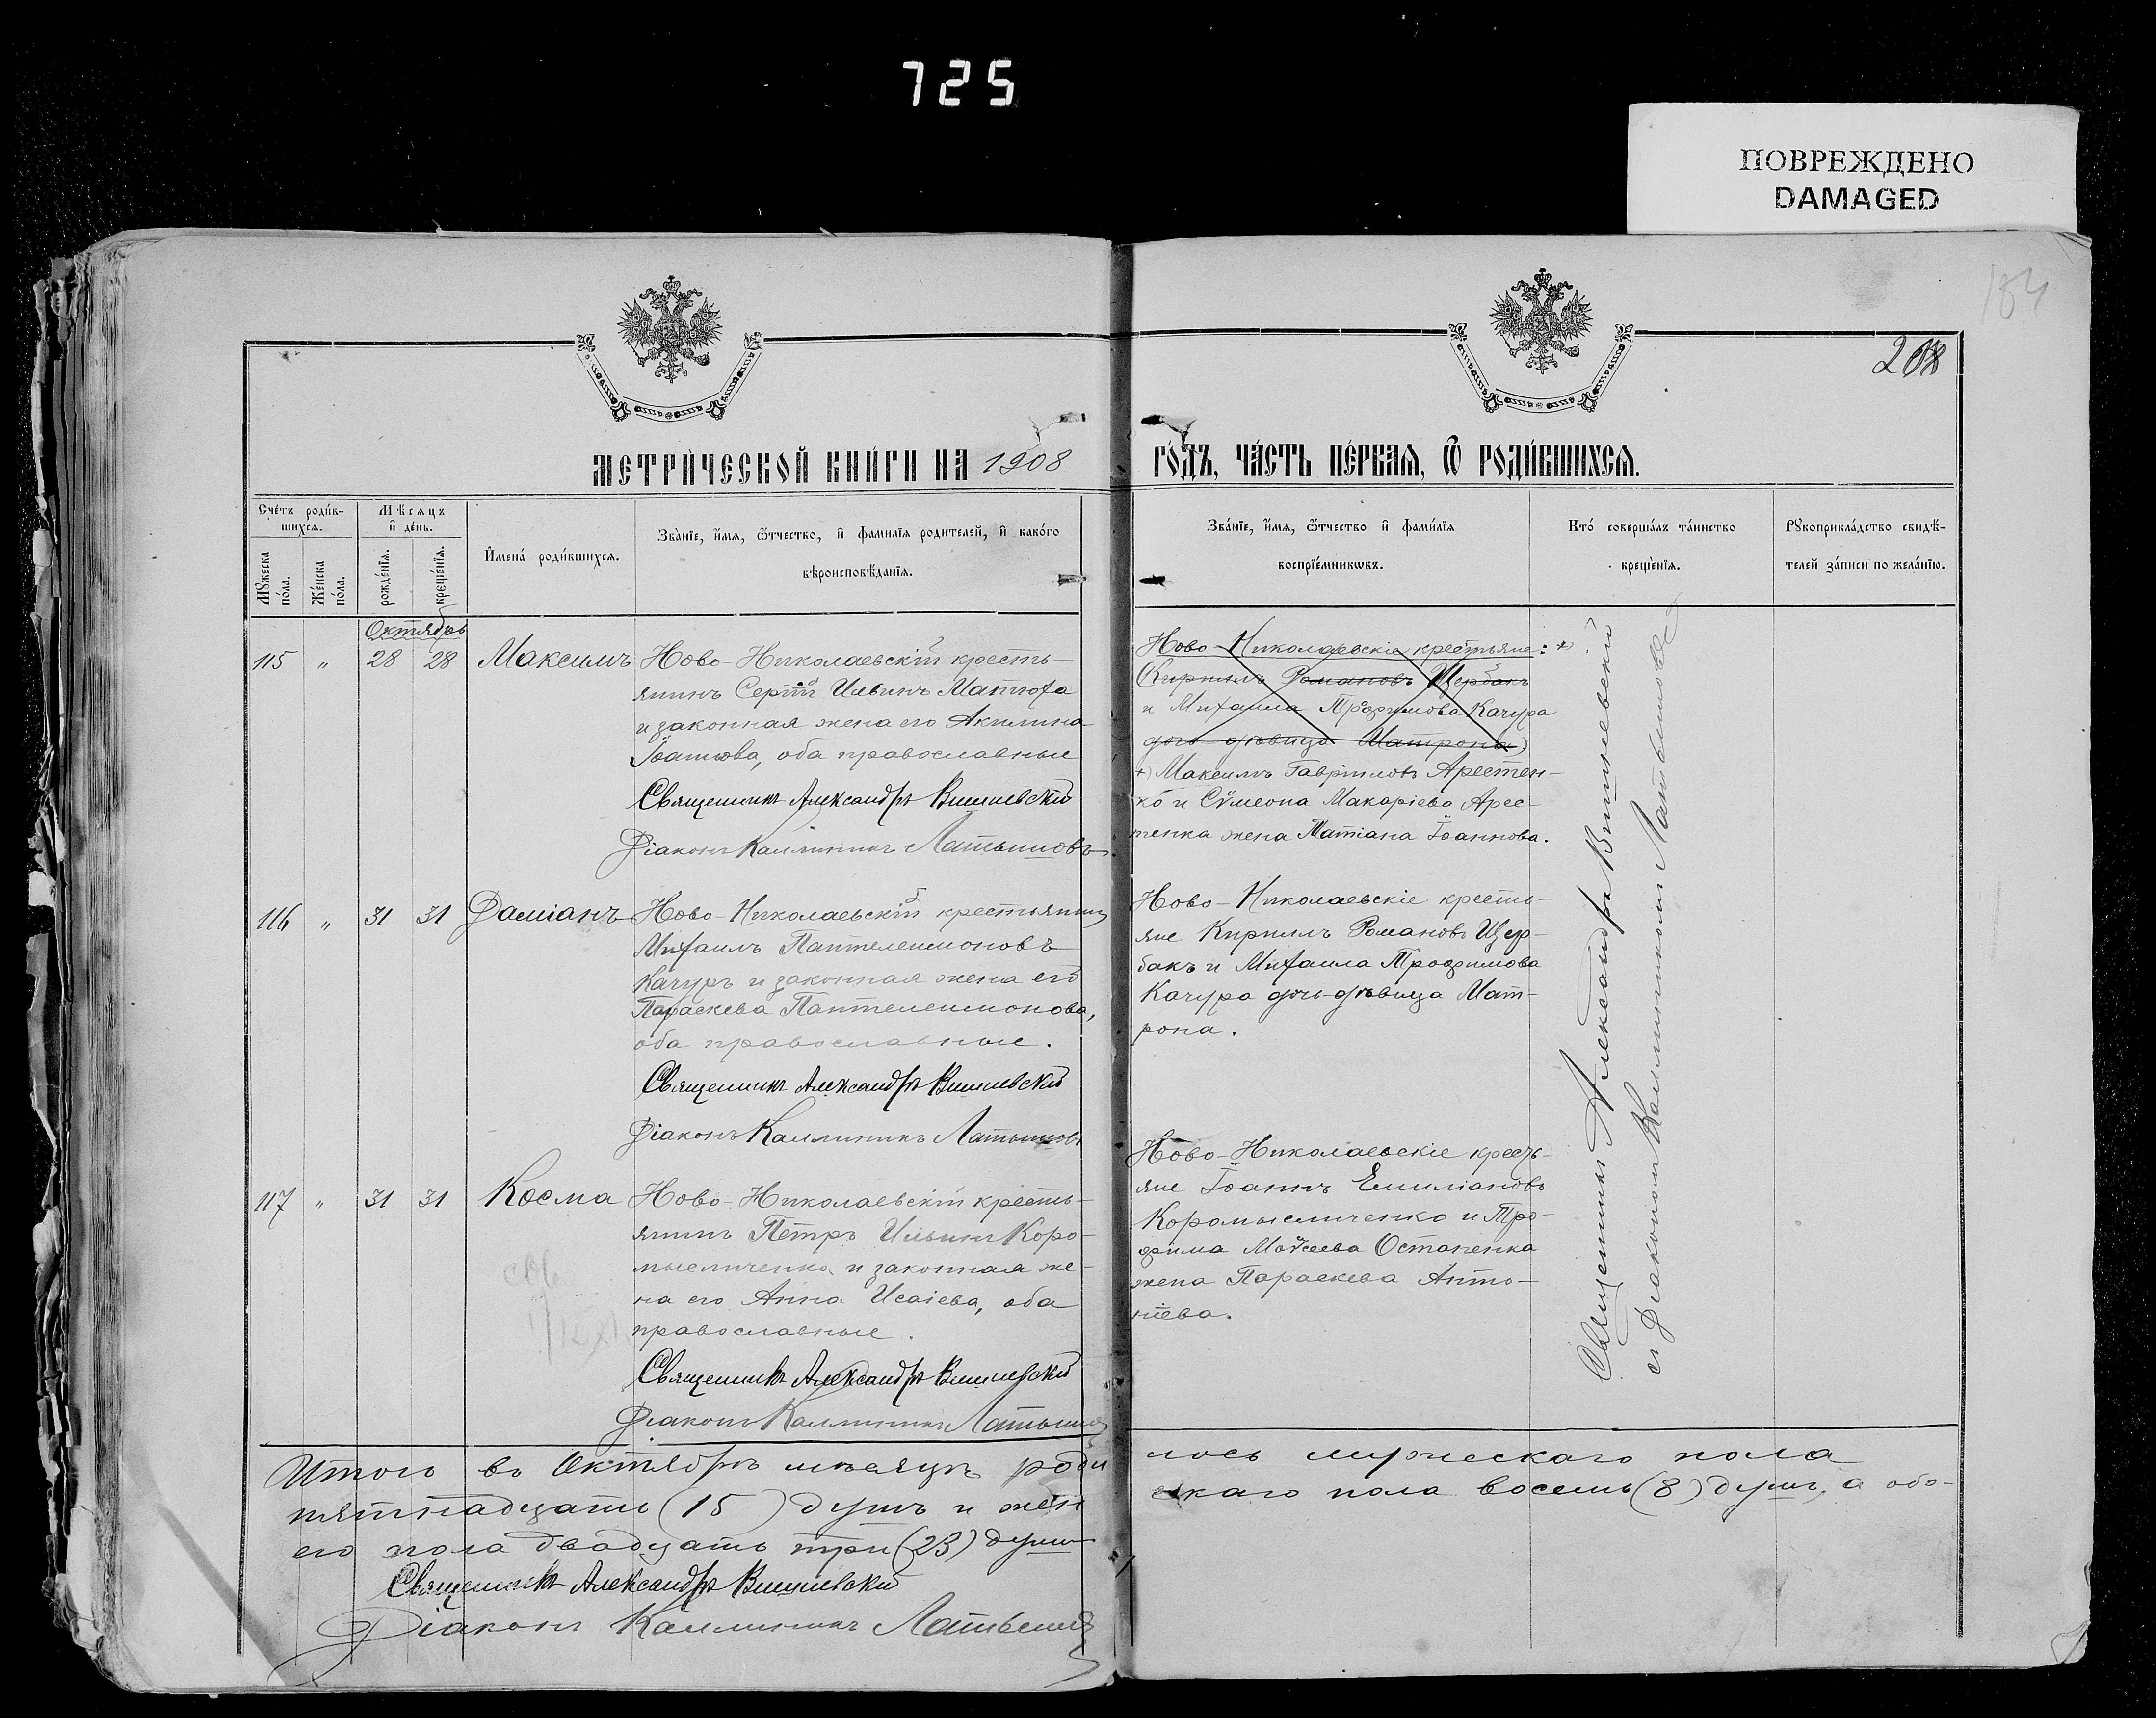 725
ПОВРЕЖДЕНО
DAMAGED
184
МЕТРИЧЕСКОЙ КНИГИ НА 1908 ГОДЪ, ЧАСТЬ ПЕРВАЯ, Ѿ РОДИВШИХСЯ.
Счетъ родив-
шихся.
Мѣсяцъ
и день.
Мужеска
пола.
Женска
пола.
рожденїя.
крещенїя.
Имена родившихся.
Званїе, имя, ѿтчество, и фамилїя родителей, и какого
вѣроисповѣданїя.
Званїе, имя, ѿтчество и фамилїя
воспрїемникѡвъ.
Кто совершалъ таинство
крещенїя.
Рукоприкладство свидѣ-
телей записи по желанїю.
Октябрь
115 " 28 28 Максимъ
Ново-Николаевскій кресть-
янинъ Сергій Ильинъ Матюха
и законная жена его Акилина
Іоаннова, оба православные
Священникъ Александръ Вишневскій
Діаконъ Каллиникъ Латышовъ
Ново-Николаевскіе крестьяне: +)
Кириллъ Романовъ Щербакъ
и Михаила Трофимова Качура
дочь дѣвица Матрона)
+) Максимъ Гавріиловъ Арестен-
ко и Сѵмеона Макаріева Арес-
тенка жена Татіана Іоаннова.
116 " 31 31 Даміанъ
Ново-Николаевскій крестьянинъ
Михаилъ Пантелеимоновъ
Качуръ и законная жена его
Параскева Пантелеимонова,
оба православные.
Священникъ Александръ Вишневскій
Діаконъ Каллиникъ Латышовъ
Ново-Николаевскіе кресть-
яне Кириллъ Романовъ Щер-
бакъ и Михаила Трофимова
Качура дочь-дѣвица Мат-
рона.
117 " 31 31 Косма
Ново-Николаевскій кресть-
янинъ Петръ Ильинъ Коро-
мысличенко и законная же-
на его Анна Исаіева, оба
православные.
Священникъ Александръ Вишневскій
Діаконъ Каллиникъ Латышовъ
Ново-Николаевскіе кресть-
яне Іоаннъ Емиліановъ
Коромысличенко и Тро-
фима Моѵсеева Остапенка
жена Параскева Анто-
ніева.
Священникъ Александръ Вишневскій
съ Діакономъ Каллиникомъ Латышовымъ
Итого въ Октябрѣ мѣсяцѣ родилось мужескаго пола
пятнадцать (15) душъ и женскаго пола восемь (8) душъ, а обо-
его пола двадцать три (23) душъ
Священникъ Александръ Вишневскій
Діаконъ Каллиникъ Латышовъ